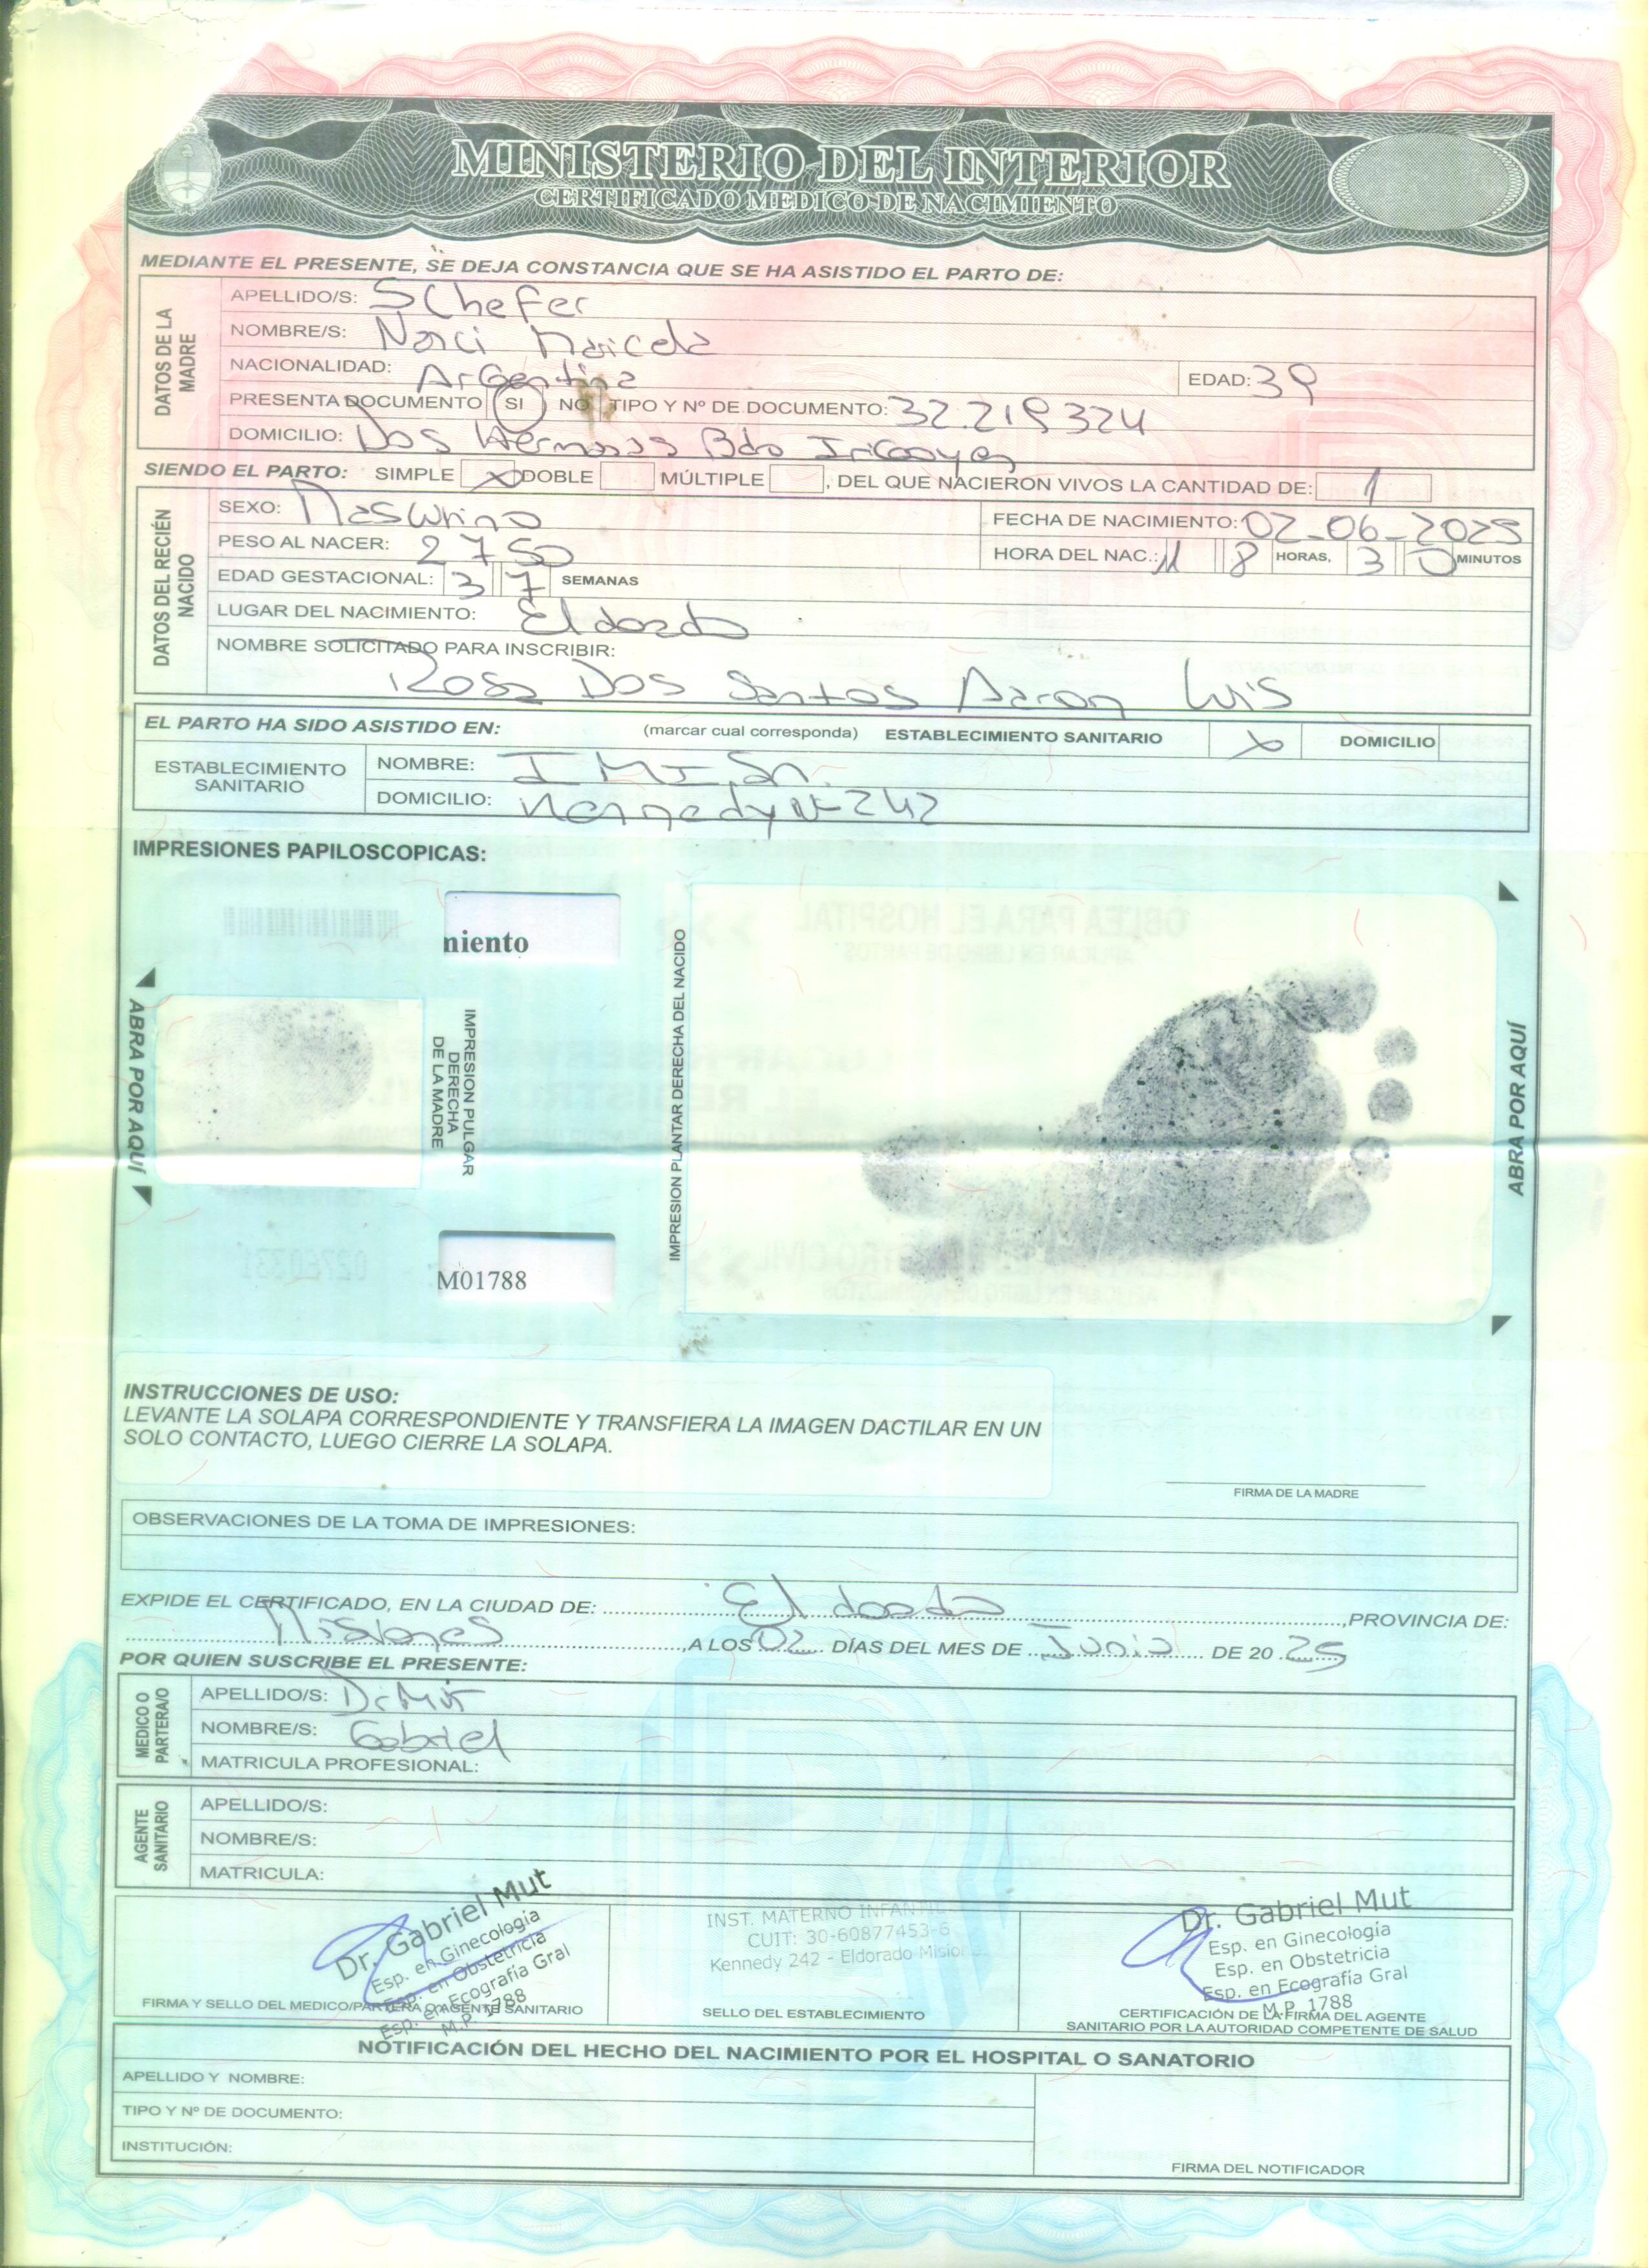 MINISTERIO DEL INTERIOR
CERTIFICADO MEDICO DE NACIMIENTO
MEDIANTE EL PRESENTE, SE DEJA CONSTANCIA QUE SE HA ASISTIDO EL PARTO DE:
DATOS DE LA MADRE
APELLIDO/S: SChefer
NOMBRE/S: Nanci Maricela
NACIONALIDAD: Argentina EDAD: 39
PRESENTA DOCUMENTO SI NO TIPO Y Nº DE DOCUMENTO: 32.219324
DOMICILIO: Dos Hermanas Bdo Irigoyen
SIENDO EL PARTO: SIMPLE x DOBLE MÚLTIPLE , DEL QUE NACIERON VIVOS LA CANTIDAD DE: 1
DATOS DEL RECIÉN NACIDO
SEXO: Masculino FECHA DE NACIMIENTO: 02-06-2025
PESO AL NACER: 2750 HORA DEL NAC.: 18 HORAS, 30 MINUTOS
EDAD GESTACIONAL: 37 SEMANAS
LUGAR DEL NACIMIENTO: Eldorado
NOMBRE SOLICITADO PARA INSCRIBIR:
Rosa Dos Santos Aaron Luis
EL PARTO HA SIDO ASISTIDO EN: (marcar cual corresponda) ESTABLECIMIENTO SANITARIO x DOMICILIO
ESTABLECIMIENTO SANITARIO
NOMBRE: I M I
DOMICILIO: Kennedy Nº 242
IMPRESIONES PAPILOSCOPICAS:
OBLEA PARA EL HOSPITAL
APLICAR EN LIBRO DE PARTOS
niento
ABRA POR AQUÍ
IMPRESION PULGAR DERECHA DE LA MADRE
IMPRESION PLANTAR DERECHA DEL NACIDO
ABRA POR AQUÍ
M01788
INSTRUCCIONES DE USO:
LEVANTE LA SOLAPA CORRESPONDIENTE Y TRANSFIERA LA IMAGEN DACTILAR EN UN
SOLO CONTACTO, LUEGO CIERRE LA SOLAPA.
FIRMA DE LA MADRE
OBSERVACIONES DE LA TOMA DE IMPRESIONES:
EXPIDE EL CERTIFICADO, EN LA CIUDAD DE: Eldorado, PROVINCIA DE:
Misiones, A LOS 02 DÍAS DEL MES DE Junio DE 2025
POR QUIEN SUSCRIBE EL PRESENTE:
MEDICO O PARTERA/O
APELLIDO/S: Dr Mut
NOMBRE/S: Gabriel
MATRICULA PROFESIONAL:
AGENTE SANITARIO
APELLIDO/S:
NOMBRE/S:
MATRICULA:
Dr. Gabriel Mut
Esp. en Ginecología
Esp. en Obstetricia
Esp. en Ecografía Gral
M.P. 1788
FIRMA Y SELLO DEL MEDICO/PARTERA O AGENTE SANITARIO
INST. MATERNO INFANTIL
CUIT: 30-60877453-6
Kennedy 242 - Eldorado Misiones
SELLO DEL ESTABLECIMIENTO
Dr. Gabriel Mut
Esp. en Ginecología
Esp. en Obstetricia
Esp. en Ecografía Gral
M.P. 1788
CERTIFICACIÓN DE LA FIRMA DEL AGENTE
SANITARIO POR LA AUTORIDAD COMPETENTE DE SALUD
NOTIFICACIÓN DEL HECHO DEL NACIMIENTO POR EL HOSPITAL O SANATORIO
APELLIDO Y NOMBRE:
TIPO Y Nº DE DOCUMENTO:
INSTITUCIÓN:
FIRMA DEL NOTIFICADOR